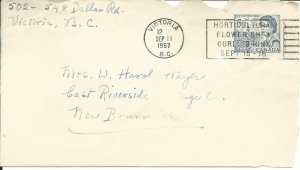 502 - 548 Dallas Rd.
Victoria, B.C.
VICTORIA
12
SEP 11
1967
B.C.
HORTICULTURAL
FLOWER SHOW
CURLING RINK
SEPT 15-16
CANADA
Mrs. W. Harold
East Riverside
New Brunswick